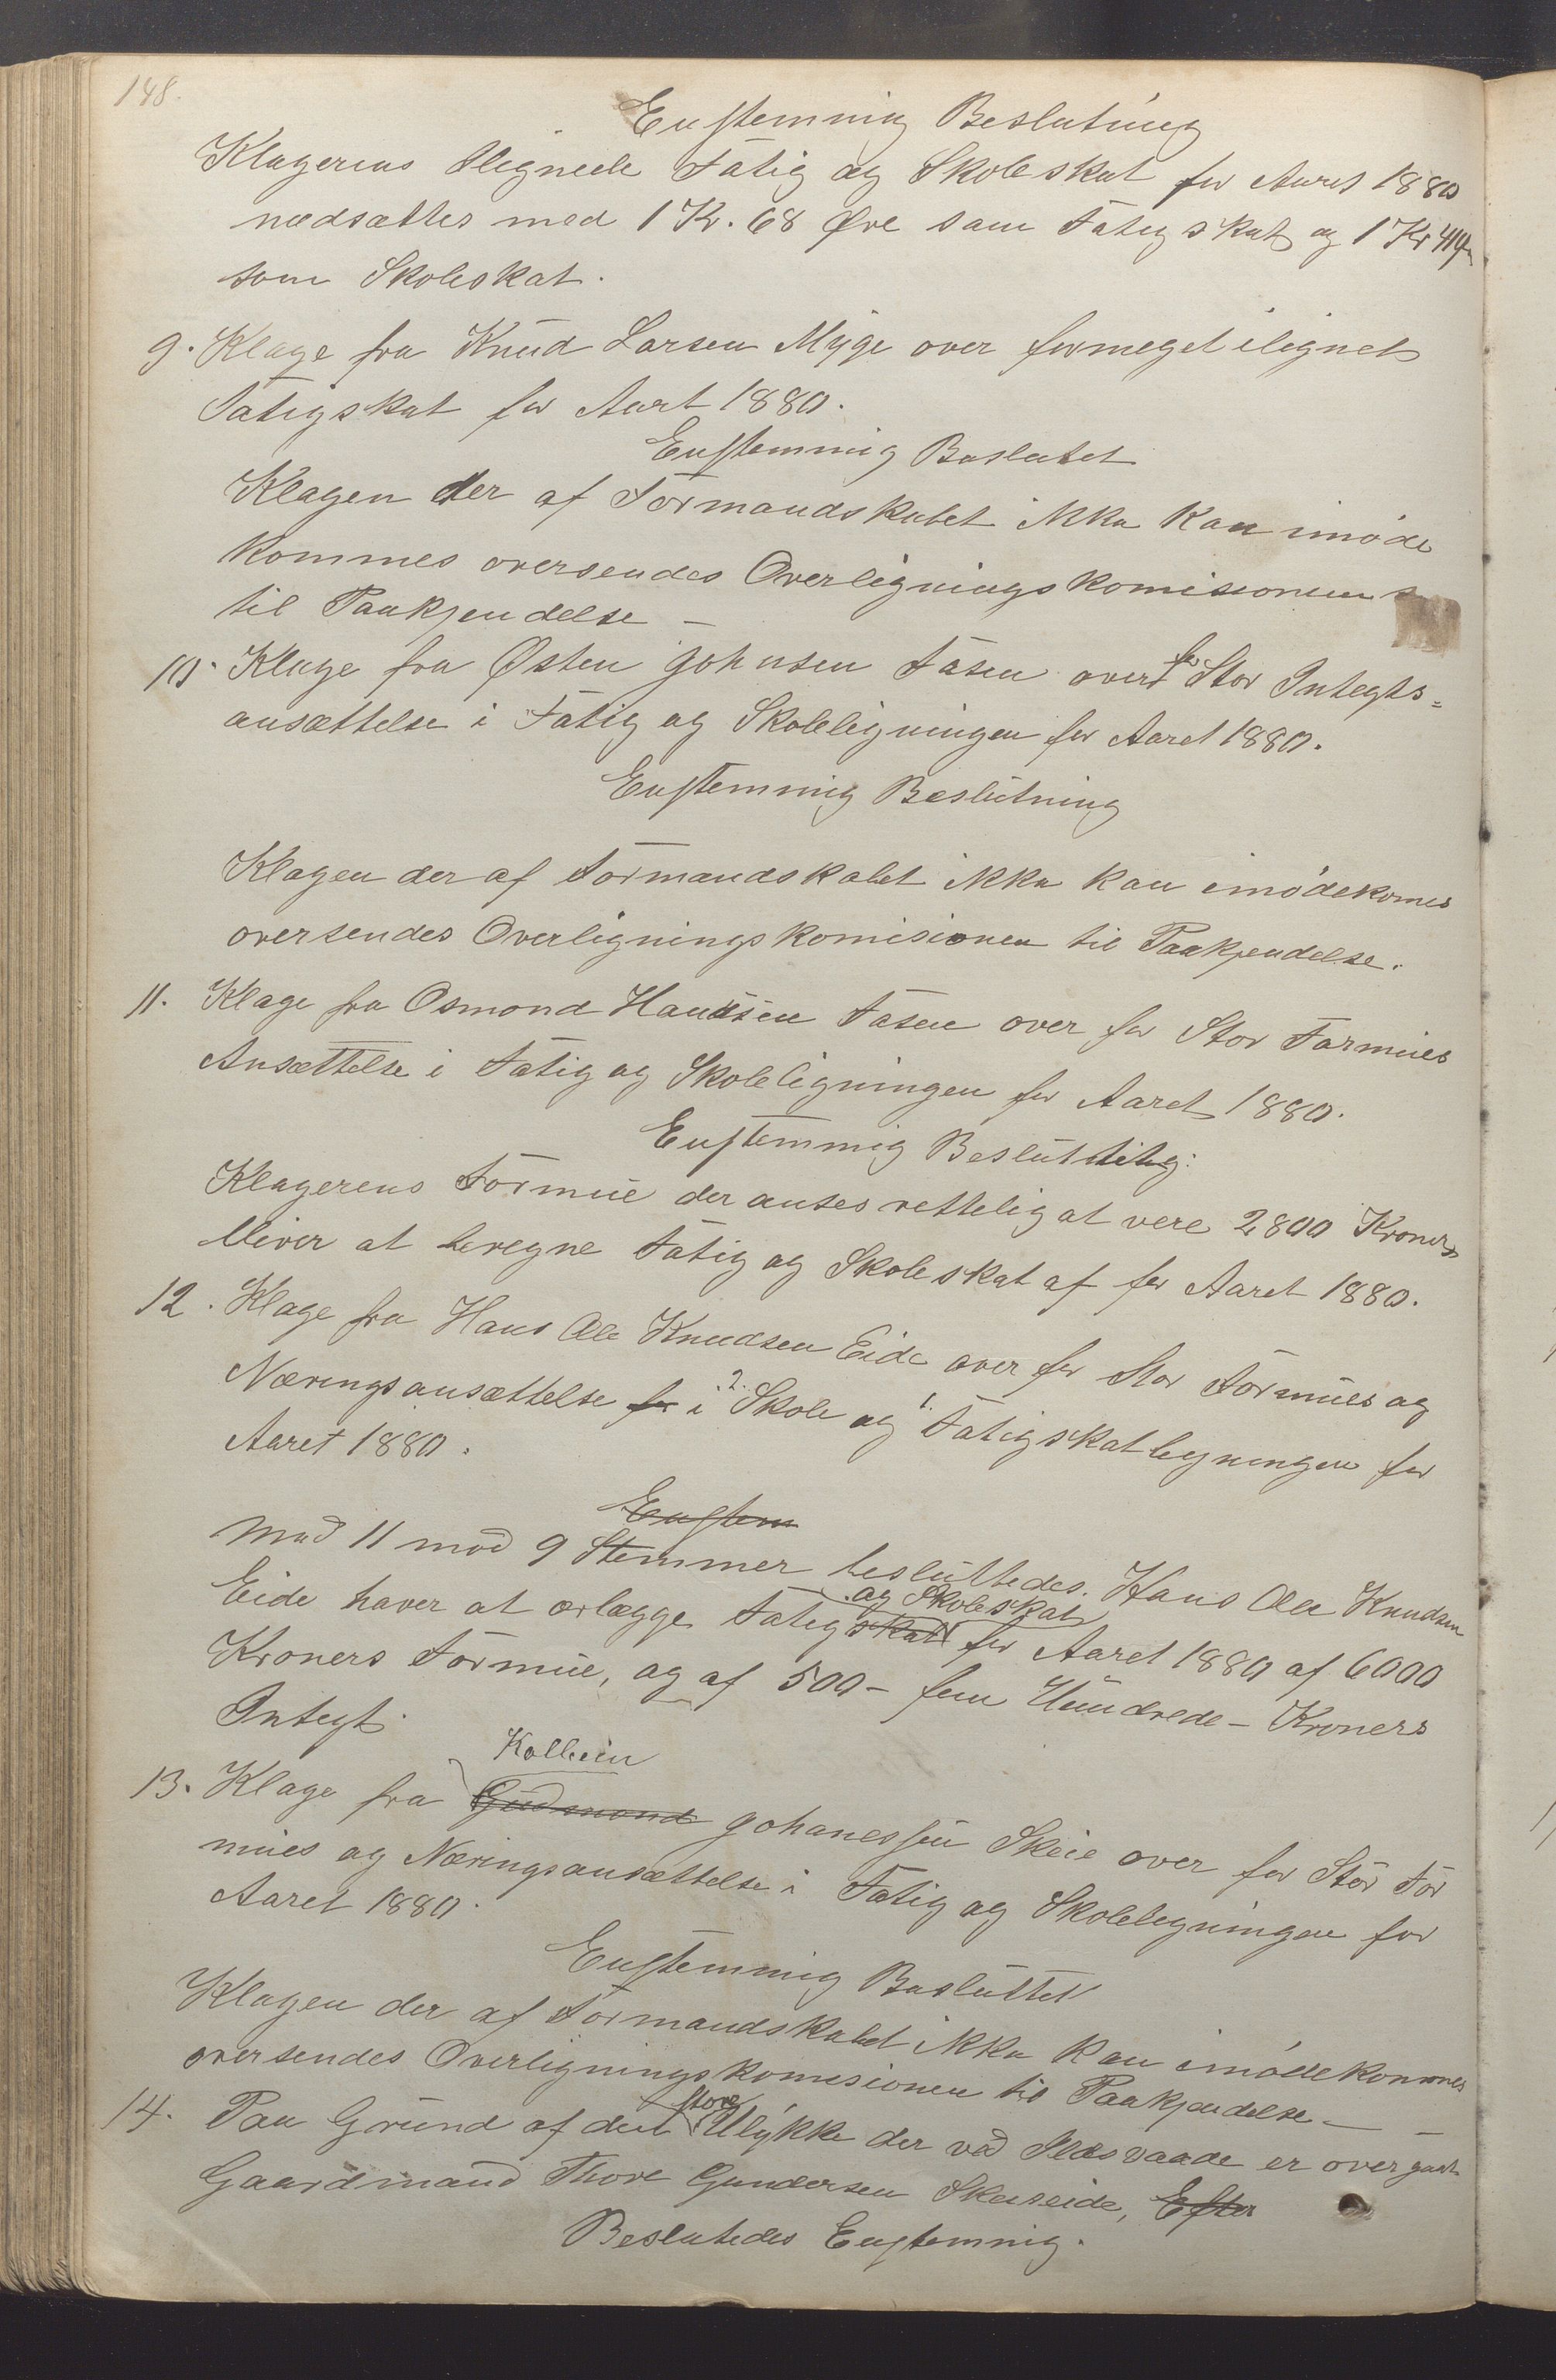 148.
Enstemmig Beslutning
Klagerens ilignede Fatig og Skoleskat for Aaret 1880
nedsættes med 1 Kr. 68 Øre som Fatigskat og 1 Kr
som Skoleskat.
9. Klage fra Knud Larsen Myge over formeget ilignet
Fatigskat for Aart 1880.
Enstemmig Beslutet
Klagen der af Formandskabet ikke kan imøde
kommes oversendes Overligningskomisionen
til Paakjendelse –
10. Klage fra Østen Johnsen Tasen over for Stor Integts-
ansættelse i Fatig og Skoleligningen for Aaret 1880.
Enstemmig Beslutning
Klagen der af Formandskabet ikke kan imødekomes
oversendes Overligningskomisionen til Paakjendelse.
11. Klage fra Osmond Hansen Tasen over for Stor Formues
Ansættelse i Fatig og Skoleligningen for Aaret 1880.
Enstemmig Beslutning:
Klagerens Formue der anses rettelig at vere 2800 Kroner
bliver at beregne Fatig og Skoleskat af for Aaret 1880.
12. Klage fra Hans Ole Knudsen Eide over for Stor Formues og
Næringsansættelse for i 2. Skole og 1. Fatigskatligningen for
Aaret 1880.
Enstem
Med 11 mod 9 Stemmer besluttedes. Hans Ole Knudsen
Eide haver at erlægge Fatigskat og Skoleskat for Aaret 1880 af 6000
Kroners Formue, og af 500 – fem Hundrede – Kroners
Integt.
13. Klage fra Gudmond Kolbein Johanessen Skeie over for Stor For
mues og Næringsansættelse i Fatig og Skoleligningen for
Aaret 1880.
Enstemmig Besluttet
Klagen der af Formandskabet ikke kan imødekommes
oversendes Overligningskomisionen til Paakjendelse –
14. Paa Grund af den store Ulykke der ved Ildsvaade er overgaat
Gaardmand Thore Gundersen Skeiseide, Efter
Beslutedes Enstemmig.